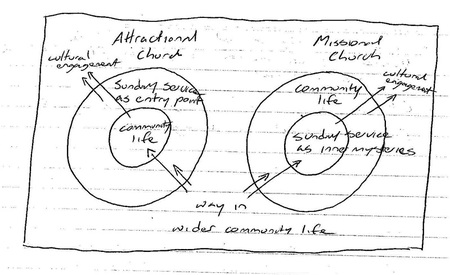 Attractional
Church
cultural
engagement
Sunday service
as entry point
community
life
Missional
Church
cultural
engagement
community
life
Sunday service
as inner mysteries
way in
wider community life